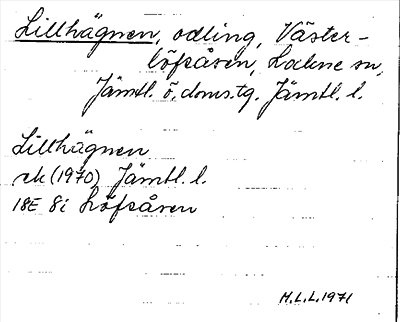 Lillhägnen, odling, Väster-
löfsåsen, Lockne sn,
Jämtl. ö. doms.tg. Jämtl. l.
Lillhägnen
ek (1970) Jämtl. l.
18E 8i Löfsåsen
H.L.L. 1971